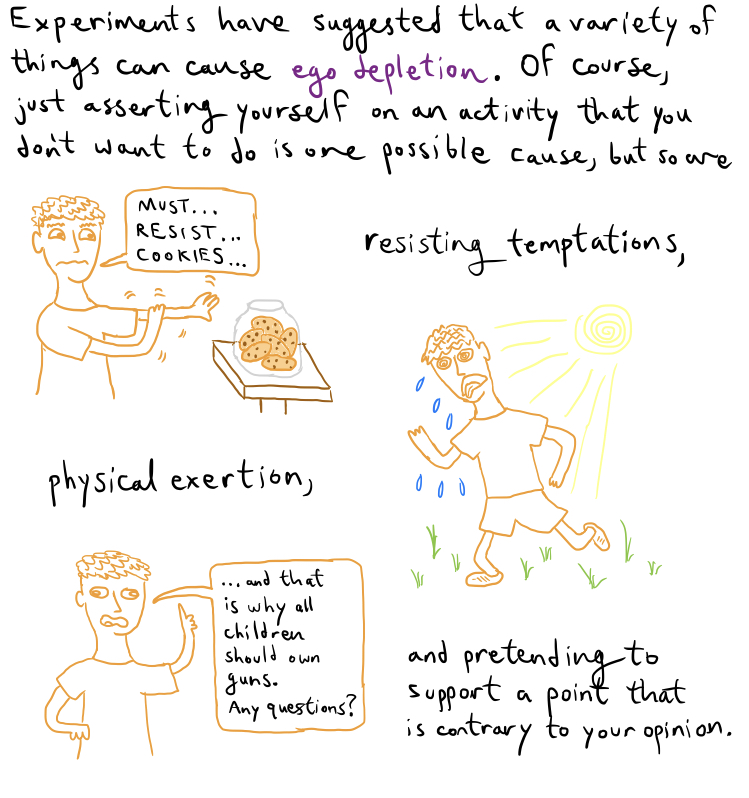 Experiments have suggested that a variety of
things can cause ego depletion. Of course,
just asserting yourself on an activity that you
don't want to do is one possible cause, but so are
MUST...
RESIST...
COOKIES...
resisting temptations,
physical exertion,
...and that
is why all
children
should own
guns.
Any questions?
and pretending to
support a point that
is contrary to your opinion.